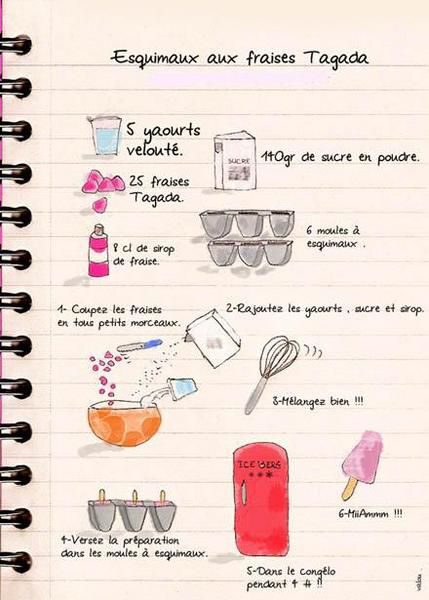 Esquimaux aux fraises Tagada
5 yaourts
velouté.
SUCRE
140gr de sucre en poudre.
25 fraises
Tagada.
6 moules à
esquimaux .
8 cl de sirop
de fraise.
1- Coupez les fraises
en tous petits morceaux.
2-Rajoutez les yaourts , sucre et sirop.
3-Mélangez bien !!!
ICEBERG
***
6-MiiAmmm !!!
4-Versez la préparation
dans les moules à esquimaux.
5-Dans le congélo
pendant 4 H !!